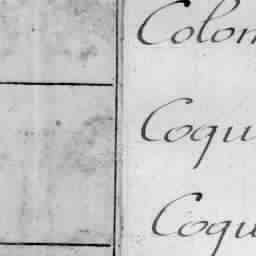 Colom
Coqu
Coqu